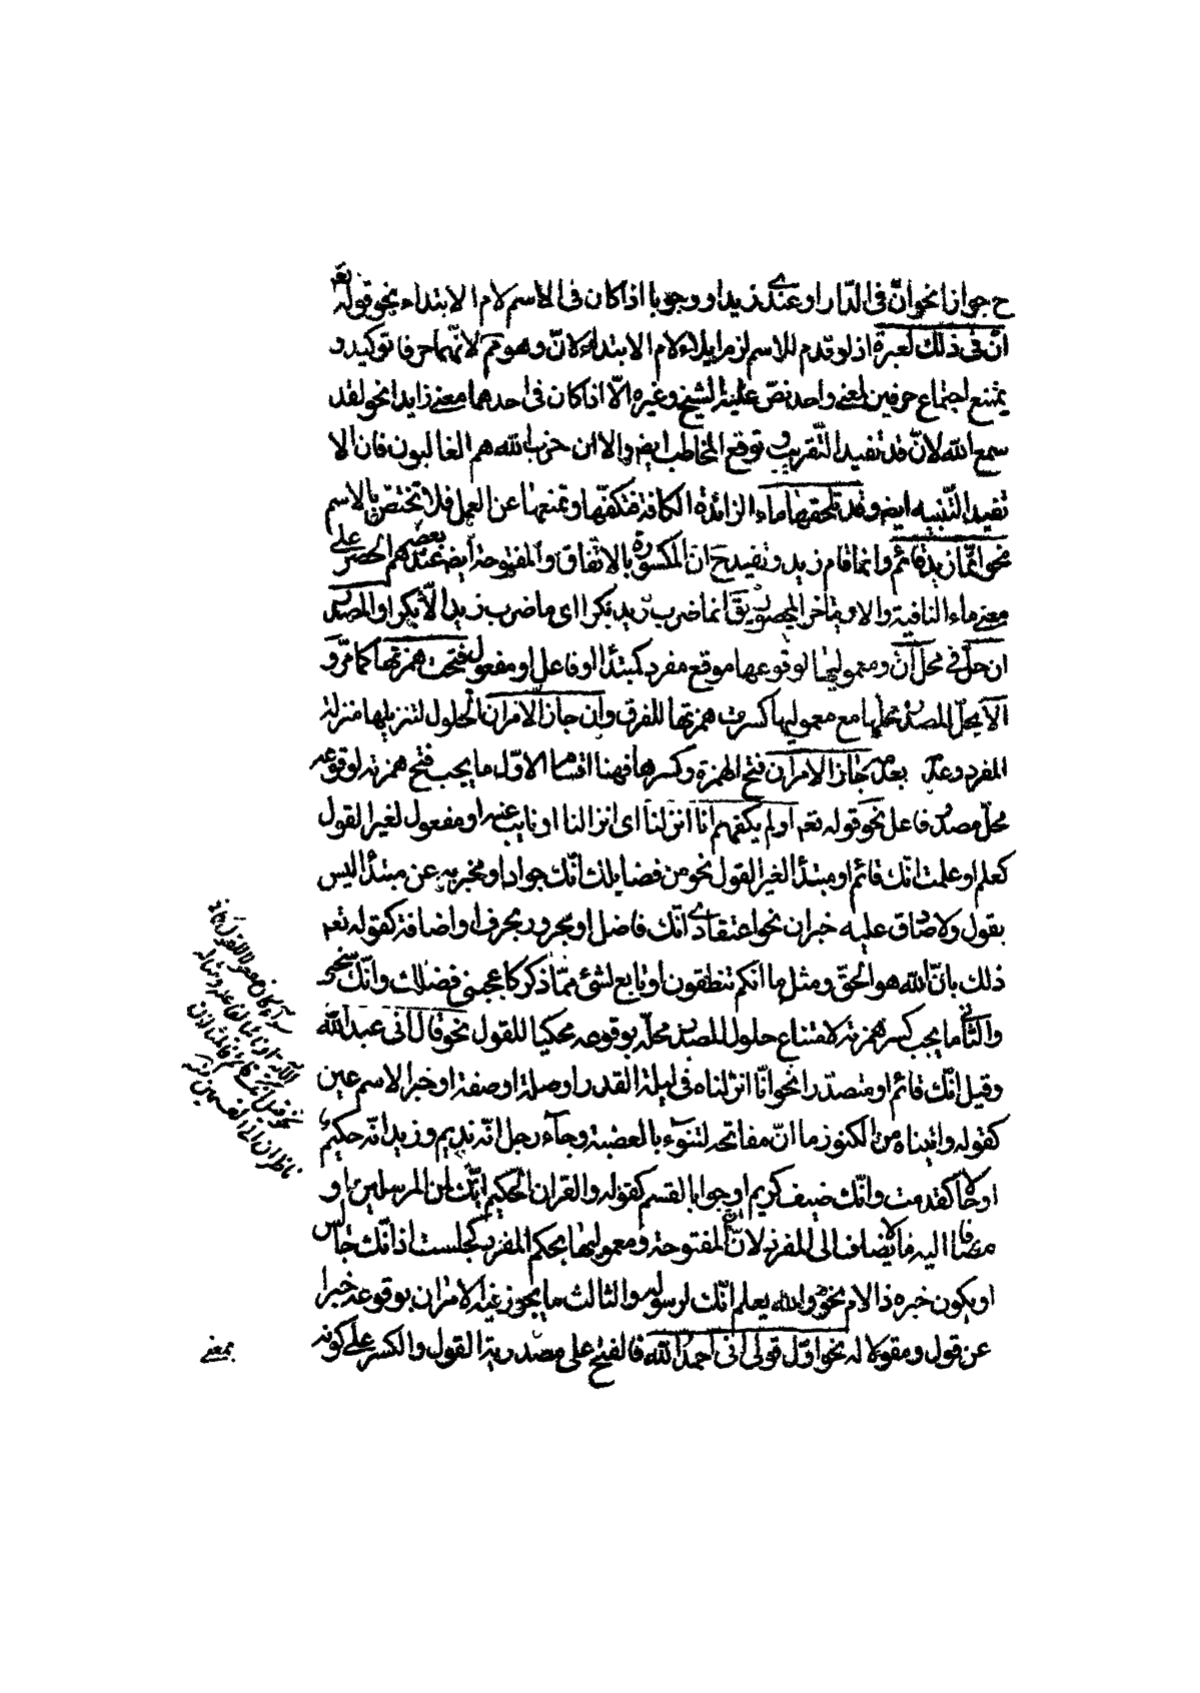 ح جوازا نحو انّ فى الدّار او عندى زيدا و وجوبا اذا كان فى الاسم لام الابتداء نحو قوله تعـ
انّ فى ذلك لعبرة اذ لو قدم الاسم لزم ايلاء لام الابتداء لانّ وهو مم لانّهما حرفا توكيد و
يمتنع اجتماع حرفين لمعنى واحد نصّ عليه الشيخ وغيره الّا اذا كان فى احدهما معنى زايدا نحو لقد
سمع الله لانّ قد تفيد التّقريب و توقع المخاطب ايض والا ان حزب الله هم الغالبون فان الا
تفيد التّنبيه ايض وقد تلحقها ماء الزائدة الكافة فتكفّها و تمنعها عن العمل فلا تختصّ بالاسم
نحو انّما زيد قائم وانما قام زيد وتفيد ح ان المكسورة بالاتفاق والمفتوحة ايض عند بعضهم الحصر على
معنى ماء النافية والا و يتاخر المحصور يق انما ضرب زيد بكرا اى ما ضرب زيد الّا بكرا والمصدر
ان حلّ فى محل انّ ومعموليها لوقوعها موقع مفرد كمبتدأ او فاعل او مفعول فتحت همزتها كما مرّ و
الّا يحلّ المصدر محلّها مع معموليها كسرت همزتها للفرق وان جاز الامران الحلول لتنزيلها منزلة
المفرد وعدمه بعد جاز الامران فتح الهمزة وكسرها فهنا اقسام الاوّل ما يجب فتح همزته لوقوعه
محلّ مصدر فاعل نحو قوله تعـ اولم يكفهم انا انزلنا اى انزالنا او نايب عنه او مفعول لغير القول
كعلم او علمت انّك قائم او مبتدأ لغير القول نحو من فضايلك انّك جواد او مخبر به عن مبتدأ ليس
بقول ولا صادق عليه خبر ان نحو اعتقادى انّك فاضل او مجرور بحرف او اضافة كقوله تعـ
ذلك بانّ الله هو الحقّ ومثل ما انكم تنطقون او تابع لشئ ممّا ذكر كاعجبنى فضلك وانّك سخى
والثانى ما يجب كسر همزته لامتناع حلول المصدر محلّه بوقوعه محكيا للقول نحو قال انى عبد الله
وقيل انّك قائم او متصدّرا نحو انّا انزلناه فى ليلة القدر او صلة او صفة او خبر الاسم عين
كقوله واتيناه من الكنوز ما انّ مفاتحه لتنوء بالعصبة وجاء رجل انّه نديم و زيد انّه حكيم
او حالا كقدمت وانّك ضيف كريم او جوابا لقسم كقوله والقران الحكيم انّك لمن المرسلين او
مضافا اليه ما لا يضاف الى المفرد لانّ المفتوحة ومعموليها بحكم المفرد كجلست اذ انّك جالس
او يكون خبره ذا لام نحو والله يعلم انّك لرسوله والثالث ما يجوز فيه الامران بوقوعه خبرا
عن قول ومقولا له نحو اوّل قولى انى احمد الله فالفتح على مصدرية القول والكسر على كونه
بمعنى